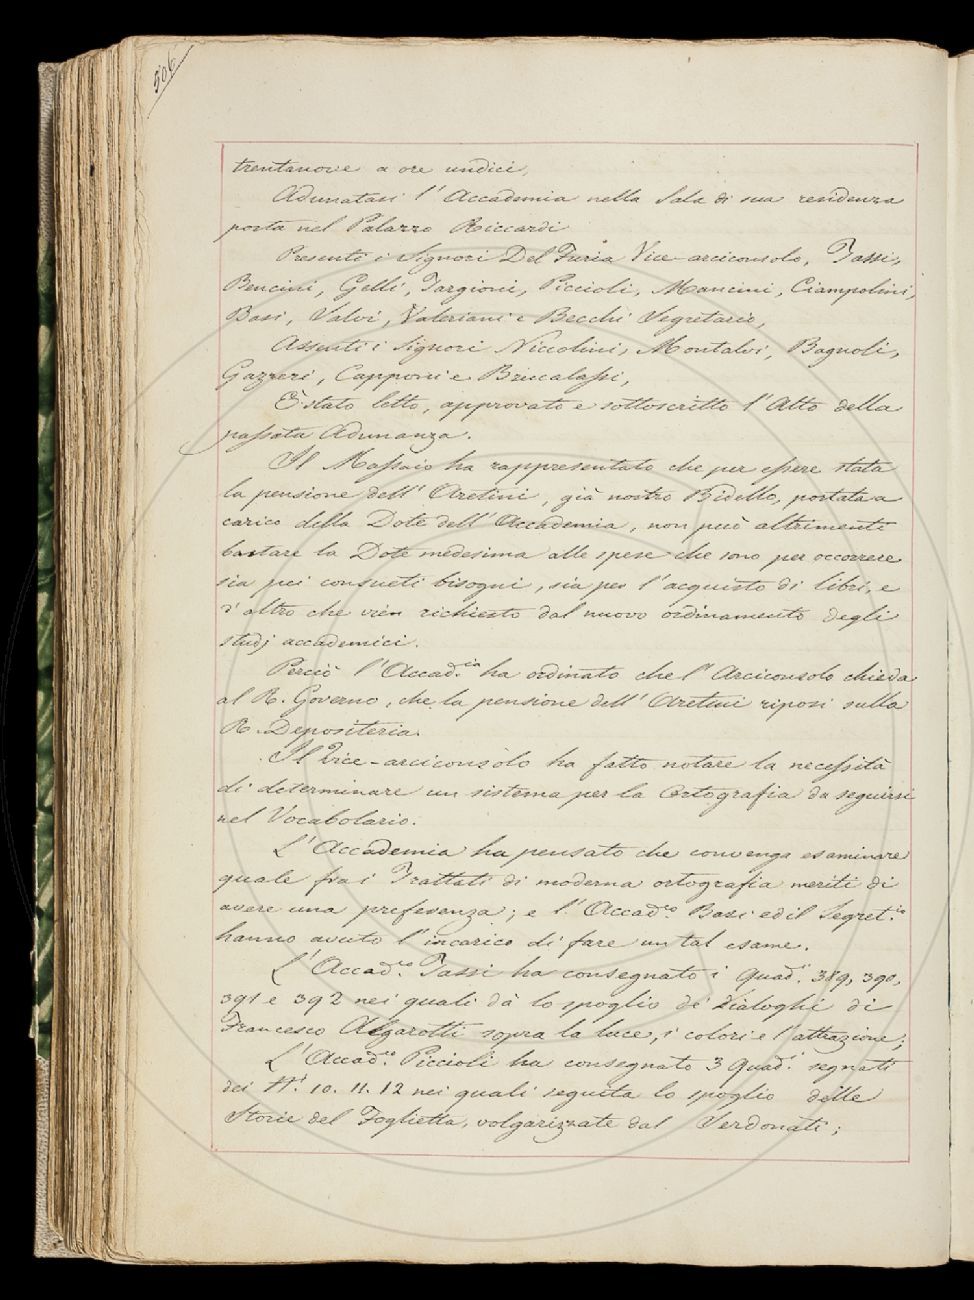 506
trentanove a ore undici,
Adunatasi l'Accademia nella Sala di sua residenza
posta nel Palazzo Riccardi
Presenti i Signori Del Furia Vice-arciconsolo, Tassi,
Bencini, Gelli, Targioni, Piccioli, Mancini, Ciampolini,
Basi, Salvi, Valeriani e Becchi Segretario,
Assenti i Signori Niccolini, Montalvi, Bagnoli,
Gazzeri, Capponi e Briccolassi,
È stato letto, approvato e sottoscritto l'Atto della
passata Adunanza.
Il Massaio ha rappresentato che per essere stata
la pensione dell'Aretini, già nostro Bidello, portata a
carico della Dote dell'Accademia, non può altrimenti
bastare la Dote medesima alle spese che sono per occorrere
sia pei consueti bisogni, sia per l'acquisto di libri, e
d'altro che vien richiesto dal nuovo ordinamento degli
studj accademici.
Perciò l'Accad.ia ha ordinato che l'Arciconsolo chieda
al R. Governo, che la pensione dell'Aretini riposi sulla
R. Depositeria.
Il Vice-arciconsolo ha fatto notare la necessità
di determinare un sistema per la Ortografia da seguirsi
nel Vocabolario.
L'Accademia ha pensato che convenga esaminare
quale fra i Trattati di moderna ortografia meriti di
avere una preferenza; e l'Accad.co Basi ed il Segret.io
hanno avuto l'incarico di fare un tal esame.
L'Accad.co Tassi ha consegnato i Quad.i 389, 390,
391 e 392 nei quali dà lo spoglio de' Dialoghi di
Francesco Algarotti sopra la luce, i colori e l'attrazione;
L'Accad.co Piccioli ha consegnato 3 Quad.i segnati
dei N.i 10. 11. 12 nei quali seguita lo spoglio delle
Storie del Foglietta, volgarizzate dal Serdonati;